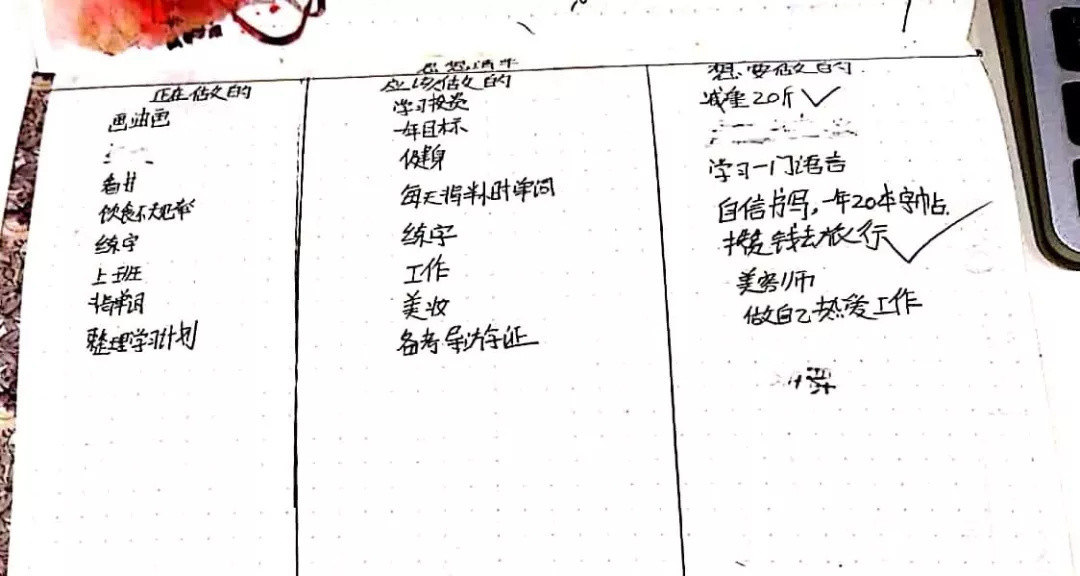 思想清单
正在做的
画油画
看书
饮食不太规律
练字
上班
背单词
整理学习计划
应该做的
学习投资
一年目标
健身
每天背半小时单词
练字
工作
美妆
备考导游证
想要做的
减重20斤
学习一门语言
自信书写,一年20本字帖.
挣钱去旅行
美容师
做自己热爱工作